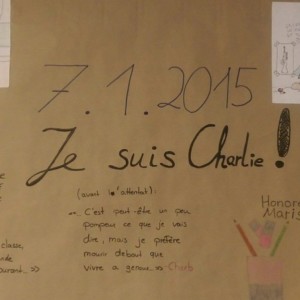 7.1.2015
Je suis Charlie!
(avant l'attentat):
C'est peut-être un peu
pompeux ce que je vais
dire, mais je préfère
mourir debout que
vivre à genoux. Charb
Honoré
Maris
classe,